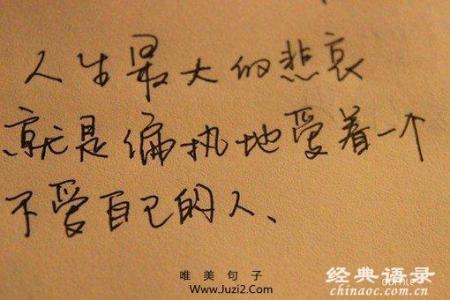 人生最大的悲哀
就是偏执地爱着一个
不爱自己的人、
唯美句子
www.Juzi2.Com
经典语录
chinaoc.com.cn